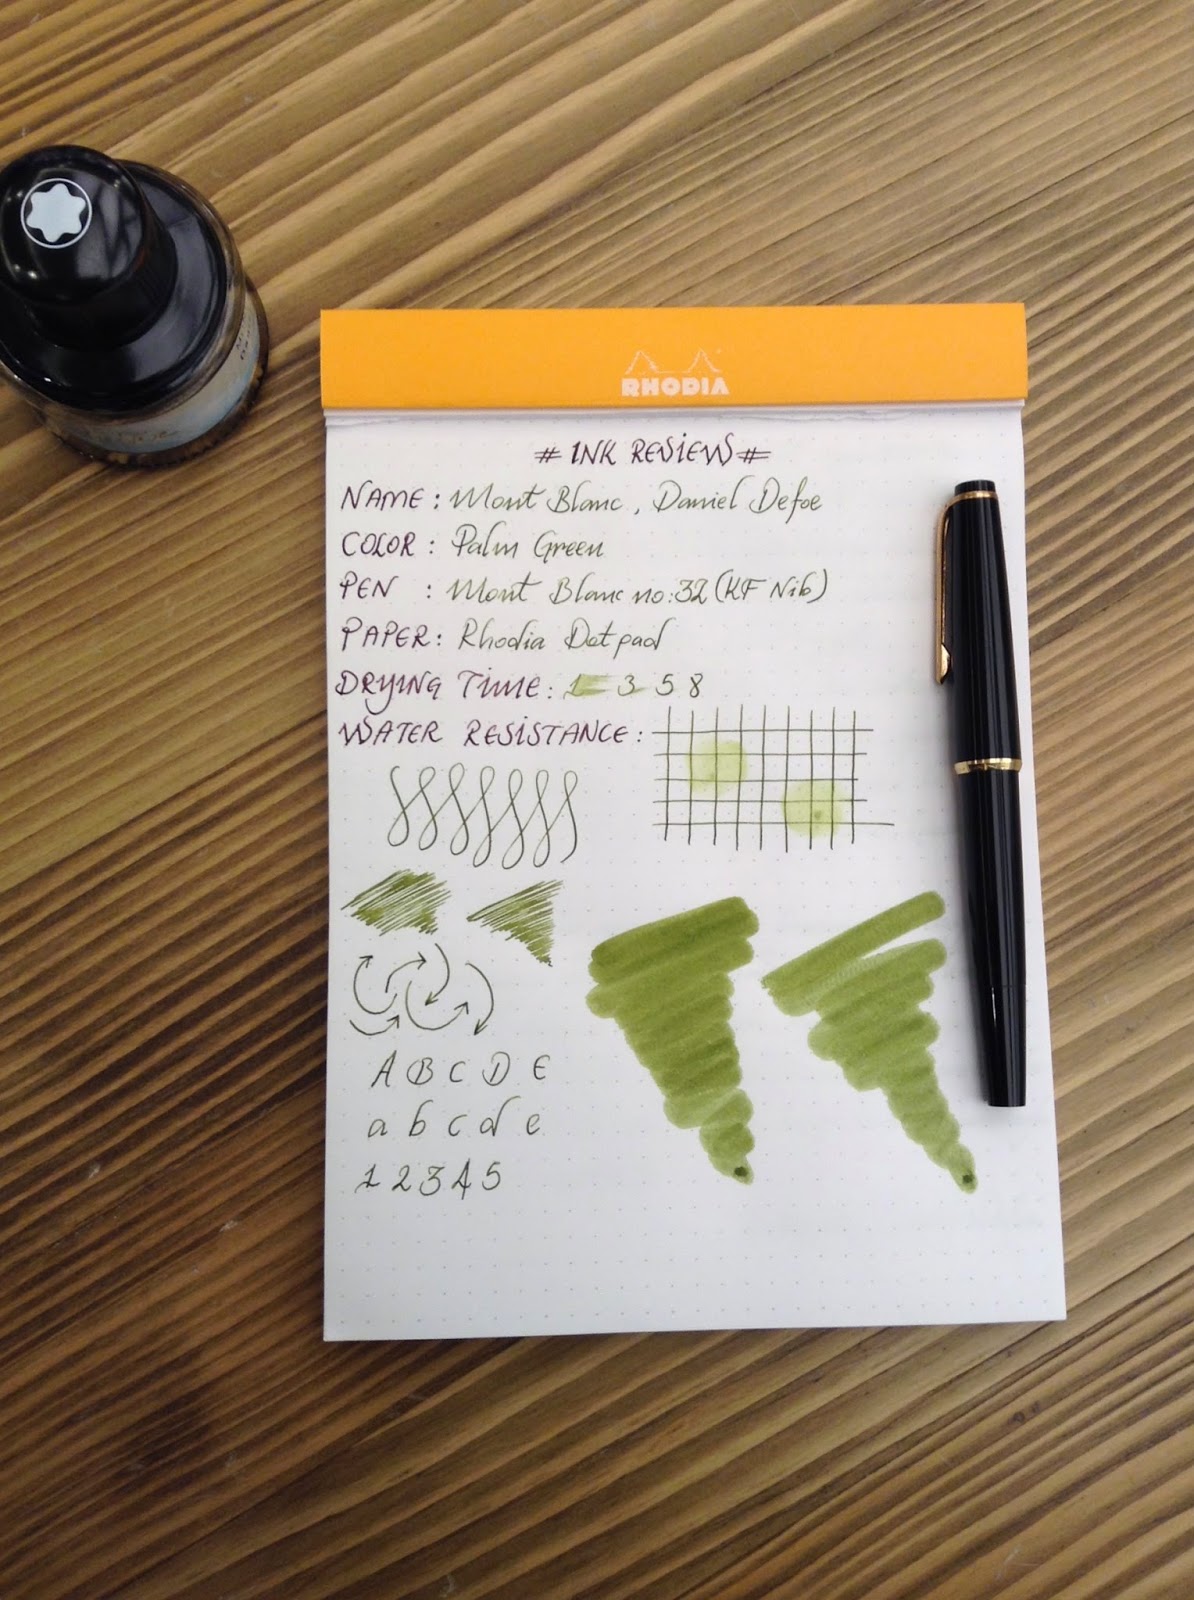 RHODIA
# INK REVIEW #
NAME : Mont Blanc , Daniel Defoe
COLOR : Palm Green
PEN : Mont Blanc no:32 (KF Nib)
PAPER : Rhodia Dot pad
DRYING TIME : 1 3 5 8
WATER RESISTANCE :
A B C D E
a b c d e
1 2 3 4 5